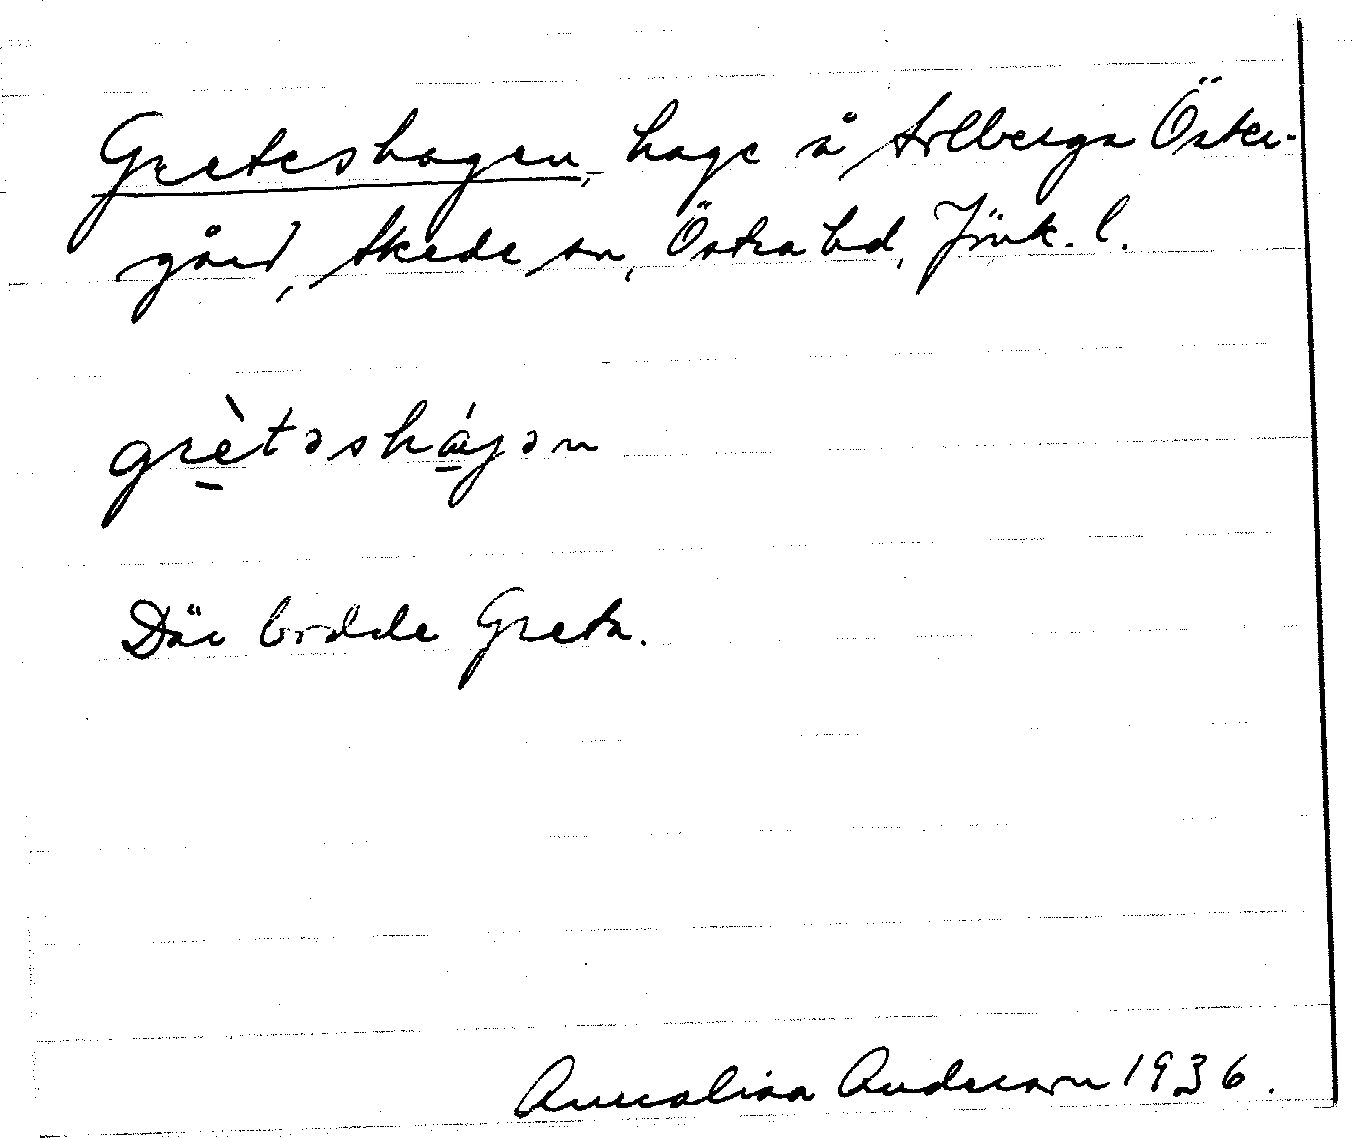 Greteshagen, hage å Solberga Öster-
gård, Skede sn, Östra hd, Jönk. l.
grètəsháɡən
Där bodde Greta.
Annalisa Anderson 1936.